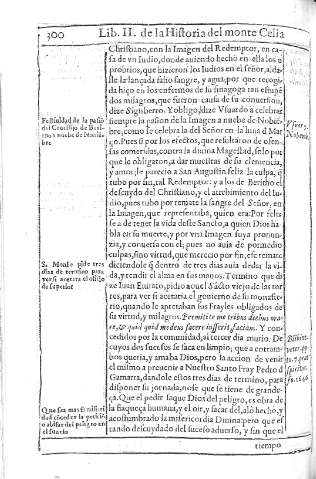 300 Lib. II. de la Historia del monte Celia
Christiano, con la Imagen del Redemptor, en ca-
sa de vn Iudio, donde auiendo hecho en ella los o
probrios, que hizieron los Iudios en el señor, al da-
lle la lançada salio sangre, y agua; por que recogi-
da hizo en los enfermos de su sinagoga tan estupẽ
dos milagros, que fueron causa de su conuersion,
dize Sigisberto. Y obligo, dize Vsuardo à celebrar
siempre la pasion de la Imagen a nueue de Nobiẽ-
bre, como se celebra la del Señor en la luna d Mar
ço. Pues si por los efectos, que resultaron de ofen-
sas cometidas, contra la diuina Magestad, solo por
que le obligaron, a dar muestras de su clemencia,
y amor; le parecio a San Augustin feliz la culpa, q̃
tubo por fin, tal Redemptor: y a los de Beritho el
descuydo del Christiano, y el atrebimiento del Iu-
dio, pues tubo por remate la sangre del Señor, en
la Imagen, que representaba, quien era: Por felis
se a de tener la vida deste Sancto, a quien Dios ha
bla en su muerte, y por vna Imagen suya pronun-
cia, y conuersa con el; pues no auia de por medio
culpas, sino virtud, que merecio por fin, este remate
diciendole q̃ dentro de tres dias auia de dar la vi-
da, y recadir el alma en sus manos. Termino que di
ze Iuan Eurato, pidio aquel Sãcto viejo de las tor
res, para ver si acetaria el gouierno de su monaste-
rio, quando le apretaban los Frayles obligados de
su virtud, y milagros. Permitite me tribus diebus ora-
re, & quid quid medeus facere iusserit, faciam. Y con-
cedidos por la comunidad, al tercer dia murio. De
cuyos dos sucesos se saca en limpio; que a entram-
bos queria, y amaba Dios, pero la accion de venir
el mismo a preuenir a Nuestro Santo Fray Pedro d
Gamarra, dandole estos tres dias de termino, para
disponer su jornada, no se que se tiene de grande-
ça. Que el pedir saque Dios del peligro, es obra de
la flaqueça humana, y el oir, y sacar del, alo hecho, y
acostumbrado la misericordia Diuina; pero que es
tando descuydado del suceso aduerso, y sin que el
tiempo
Festiuidad de la pasiõ
del Crucifijo de Beri-
tho a nueue de Nouiẽ-
bre
S. Monge pide tres
dias de termino para
ver si acetara el oficio
de superior
Que sea mas misferi
el peligro en